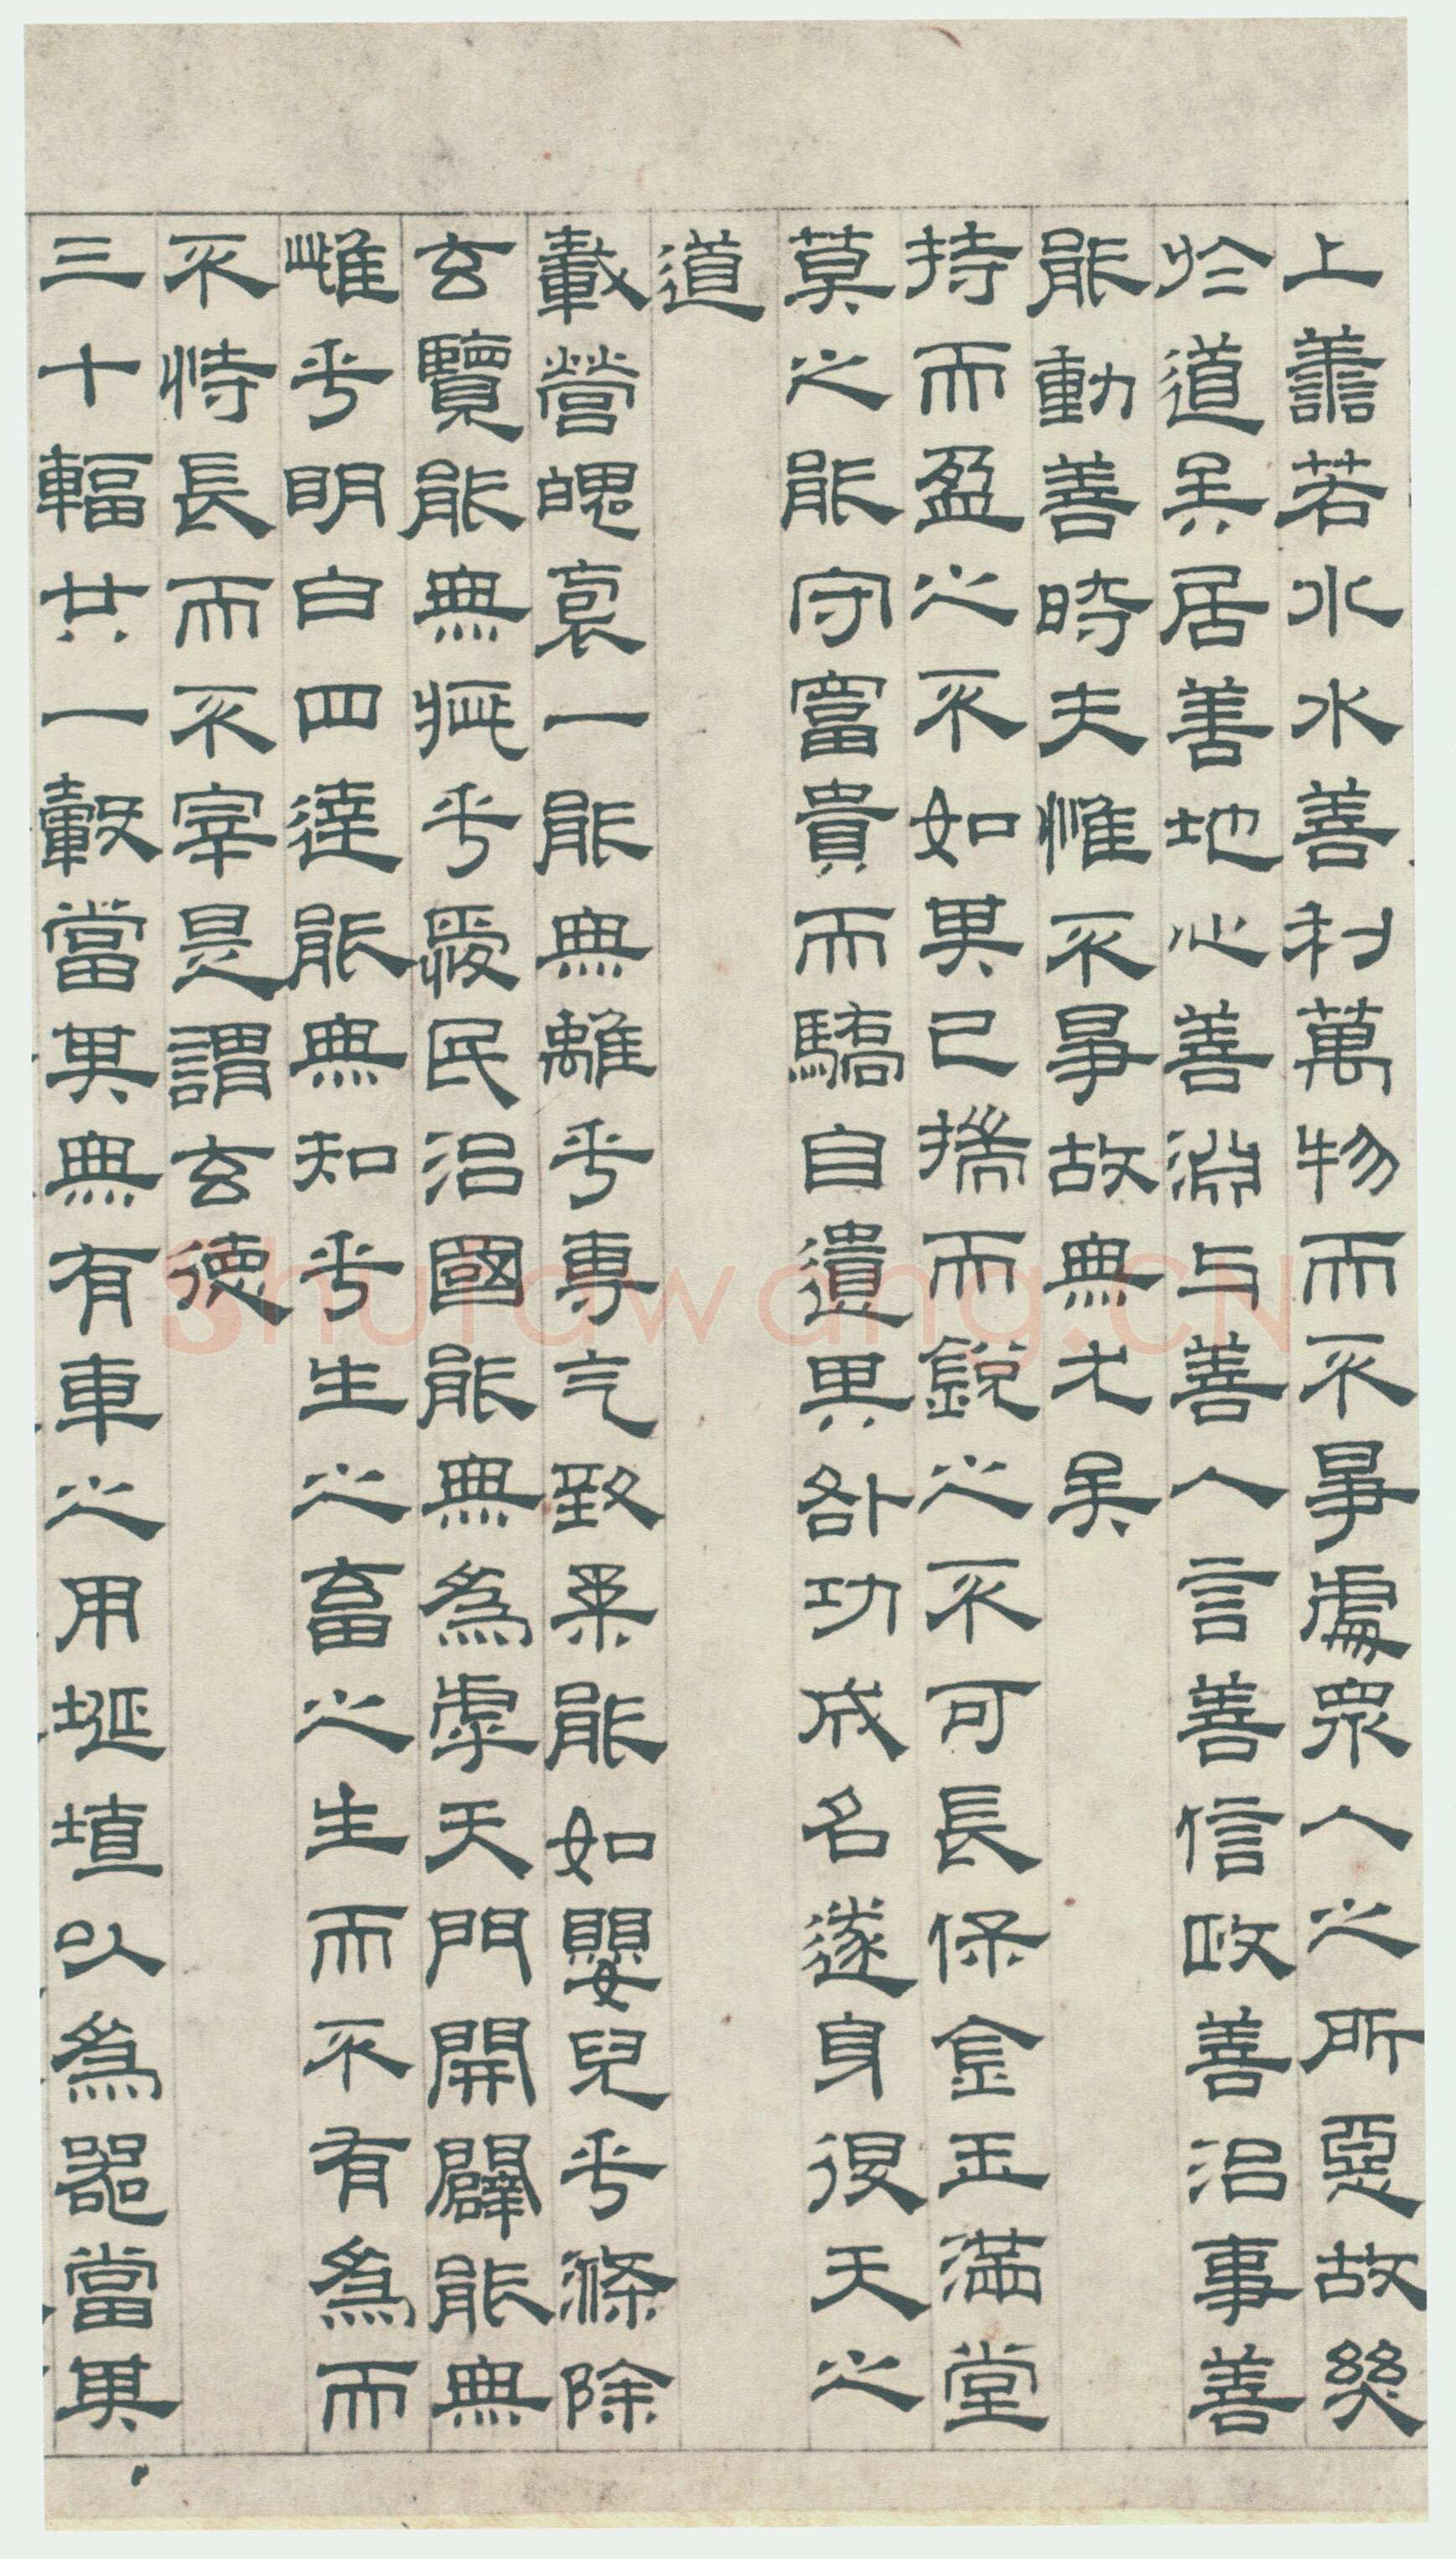 上善若水水善利萬物而不爭處眾人之所惡故幾
於道矣居善地心善淵与善人言善信政善治事善
能動善時夫惟不爭故無尤矣
持而盈之不如其已揣而銳之不可長保金玉滿堂
莫之能守富貴而驕自遺其咎功成名遂身退天之
道
載營魄裒一能無離乎專气致柔能如嬰兒乎滌除
玄覽能無疵乎愛民治國能無為虖天門開闢能無
雌乎明白四達能無知乎生之畜之生而不有為而
不恃長而不宰是謂玄德
三十輻共一轂當其無有車之用埏埴以為器當其
shufawang.CN